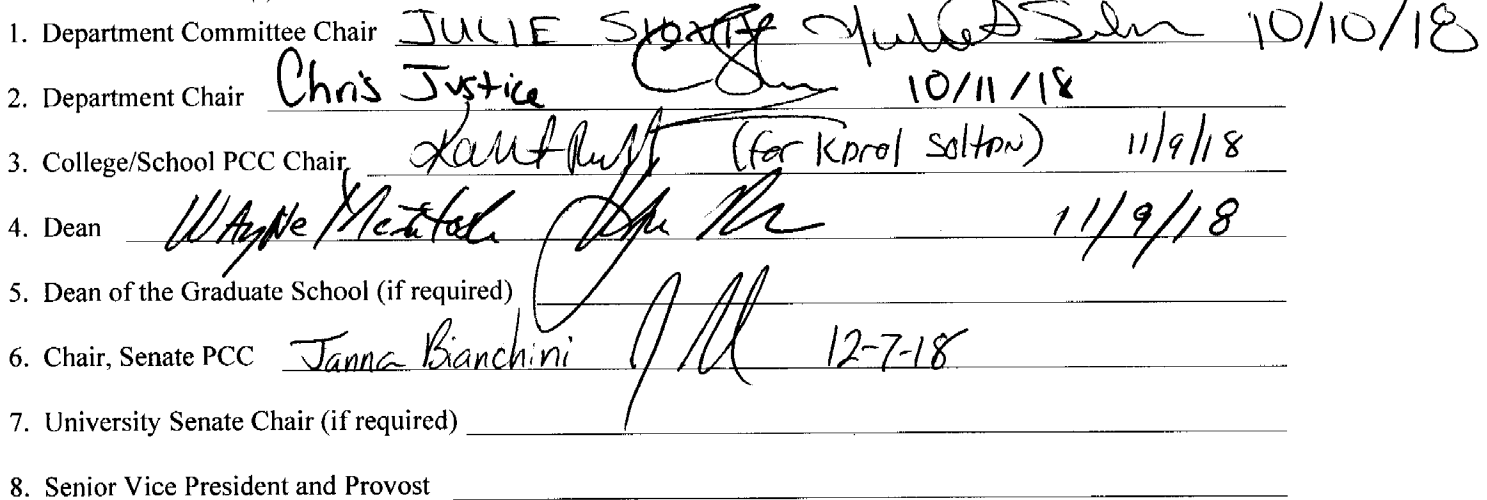 1. Department Committee Chair JULIE 10/10/18
2. Department Chair Chris Justice 10/11/18
3. College/School PCC Chair (for Karol Soltan) 11/9/18
4. Dean Wayne McIntosh 11/9/18
5. Dean of the Graduate School (if required)
6. Chair, Senate PCC Janna Bianchini 12-7-18
7. University Senate Chair (if required)
8. Senior Vice President and Provost